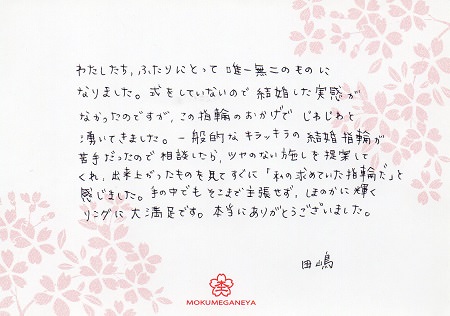 わたしたち、ふたりにとって唯一無二のものに
なりました。式をしていないので結婚した実感が
なかったのですが、この指輪のおかげでじわじわと
湧いてきました。一般的なキラッキラの結婚指輪が
苦手だったので相談したら、ツヤのない施しを提案して
くれ、出来上がったものを見てすぐに「私の求めていた指輪だ」と
感じました。手の中でもそこまで主張せず、ほのかに輝く
リングに大満足です。本当にありがとうございました。
田嶋
MOKUMEGANEYA